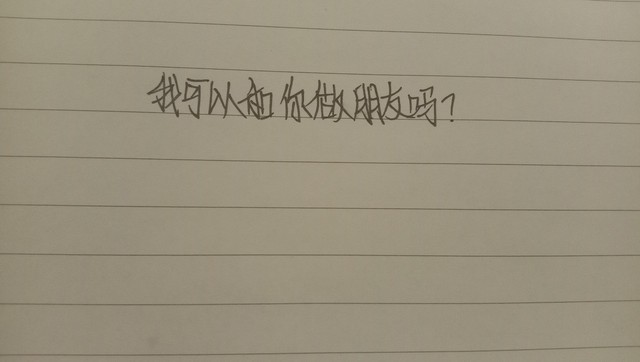 我可以和你做朋友吗？